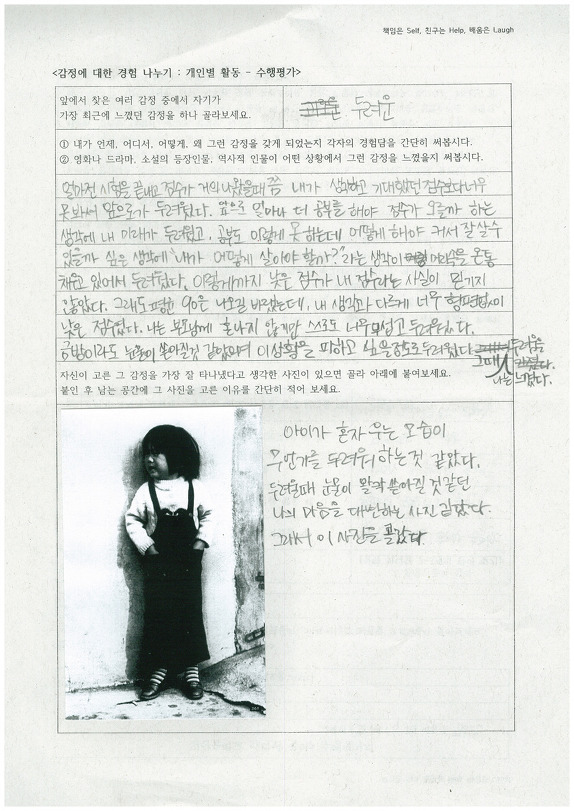 책임은 Self, 친구는 Help, 배움은 Laugh
<감정에 대한 경험 나누기 : 개인별 활동 - 수행평가>
앞에서 찾은 여러 감정 중에서 자기가
가장 최근에 느꼈던 감정을 하나 골라보세요.
두려운
① 내가 언제, 어디서, 어떻게, 왜 그런 감정을 갖게 되었는지 각자의 경험담을 간단히 써봅시다.
② 영화나 드라마, 소설의 등장인물, 역사적 인물이 어떤 상황에서 그런 감정을 느꼈을지 써봅시다.
얼마전 시험을 끝내고 점수가 거의 나왔을때쯤 내가 생각하고 기대했던 점수보다 너무
못봐서 앞으로가 두려웠다. 앞으로 얼마나 더 공부를 해야 점수가 오를까 하는
생각에 내 미래가 두려웠고, 공부도 이렇게 못하는데 어떻게 해야 커서 잘살수
있을까 싶은 생각에 "내가 어떻게 살아야 할까?"라는 생각이 머릿속을 온통
채우고 있어서 두려웠다. 이렇게까지 낮은 점수가 내 점수라는 사실이 믿기지
않았다. 그래도 평균 90은 나오길 바랬는데, 내 생각과 다르게 너무 형편없이
낮은 점수였다. 나는 부모님께 혼나지 않을까 스스로도 너무 무섭고 두려웠다.
금방이라도 눈물이 쏟아질것 같았으며 이 상황을 피하고 싶을정도로 두려웠다. 두려움을
그때
나는 느꼈다.
자신이 고른 그 감정을 가장 잘 타나냈다고 생각한 사진이 있으면 골라 아래에 붙여보세요.
붙인 후 남는 공간에 그 사진을 고른 이유를 간단히 적어 보세요.
아이가 혼자 우는 모습이
무언가를 두려워 하는것 같았다.
두려울때 눈물이 왈칵 쏟아질 것같던
나의 마음을 대변하는 사진 같았다.
그래서 이 사진을 골랐다.